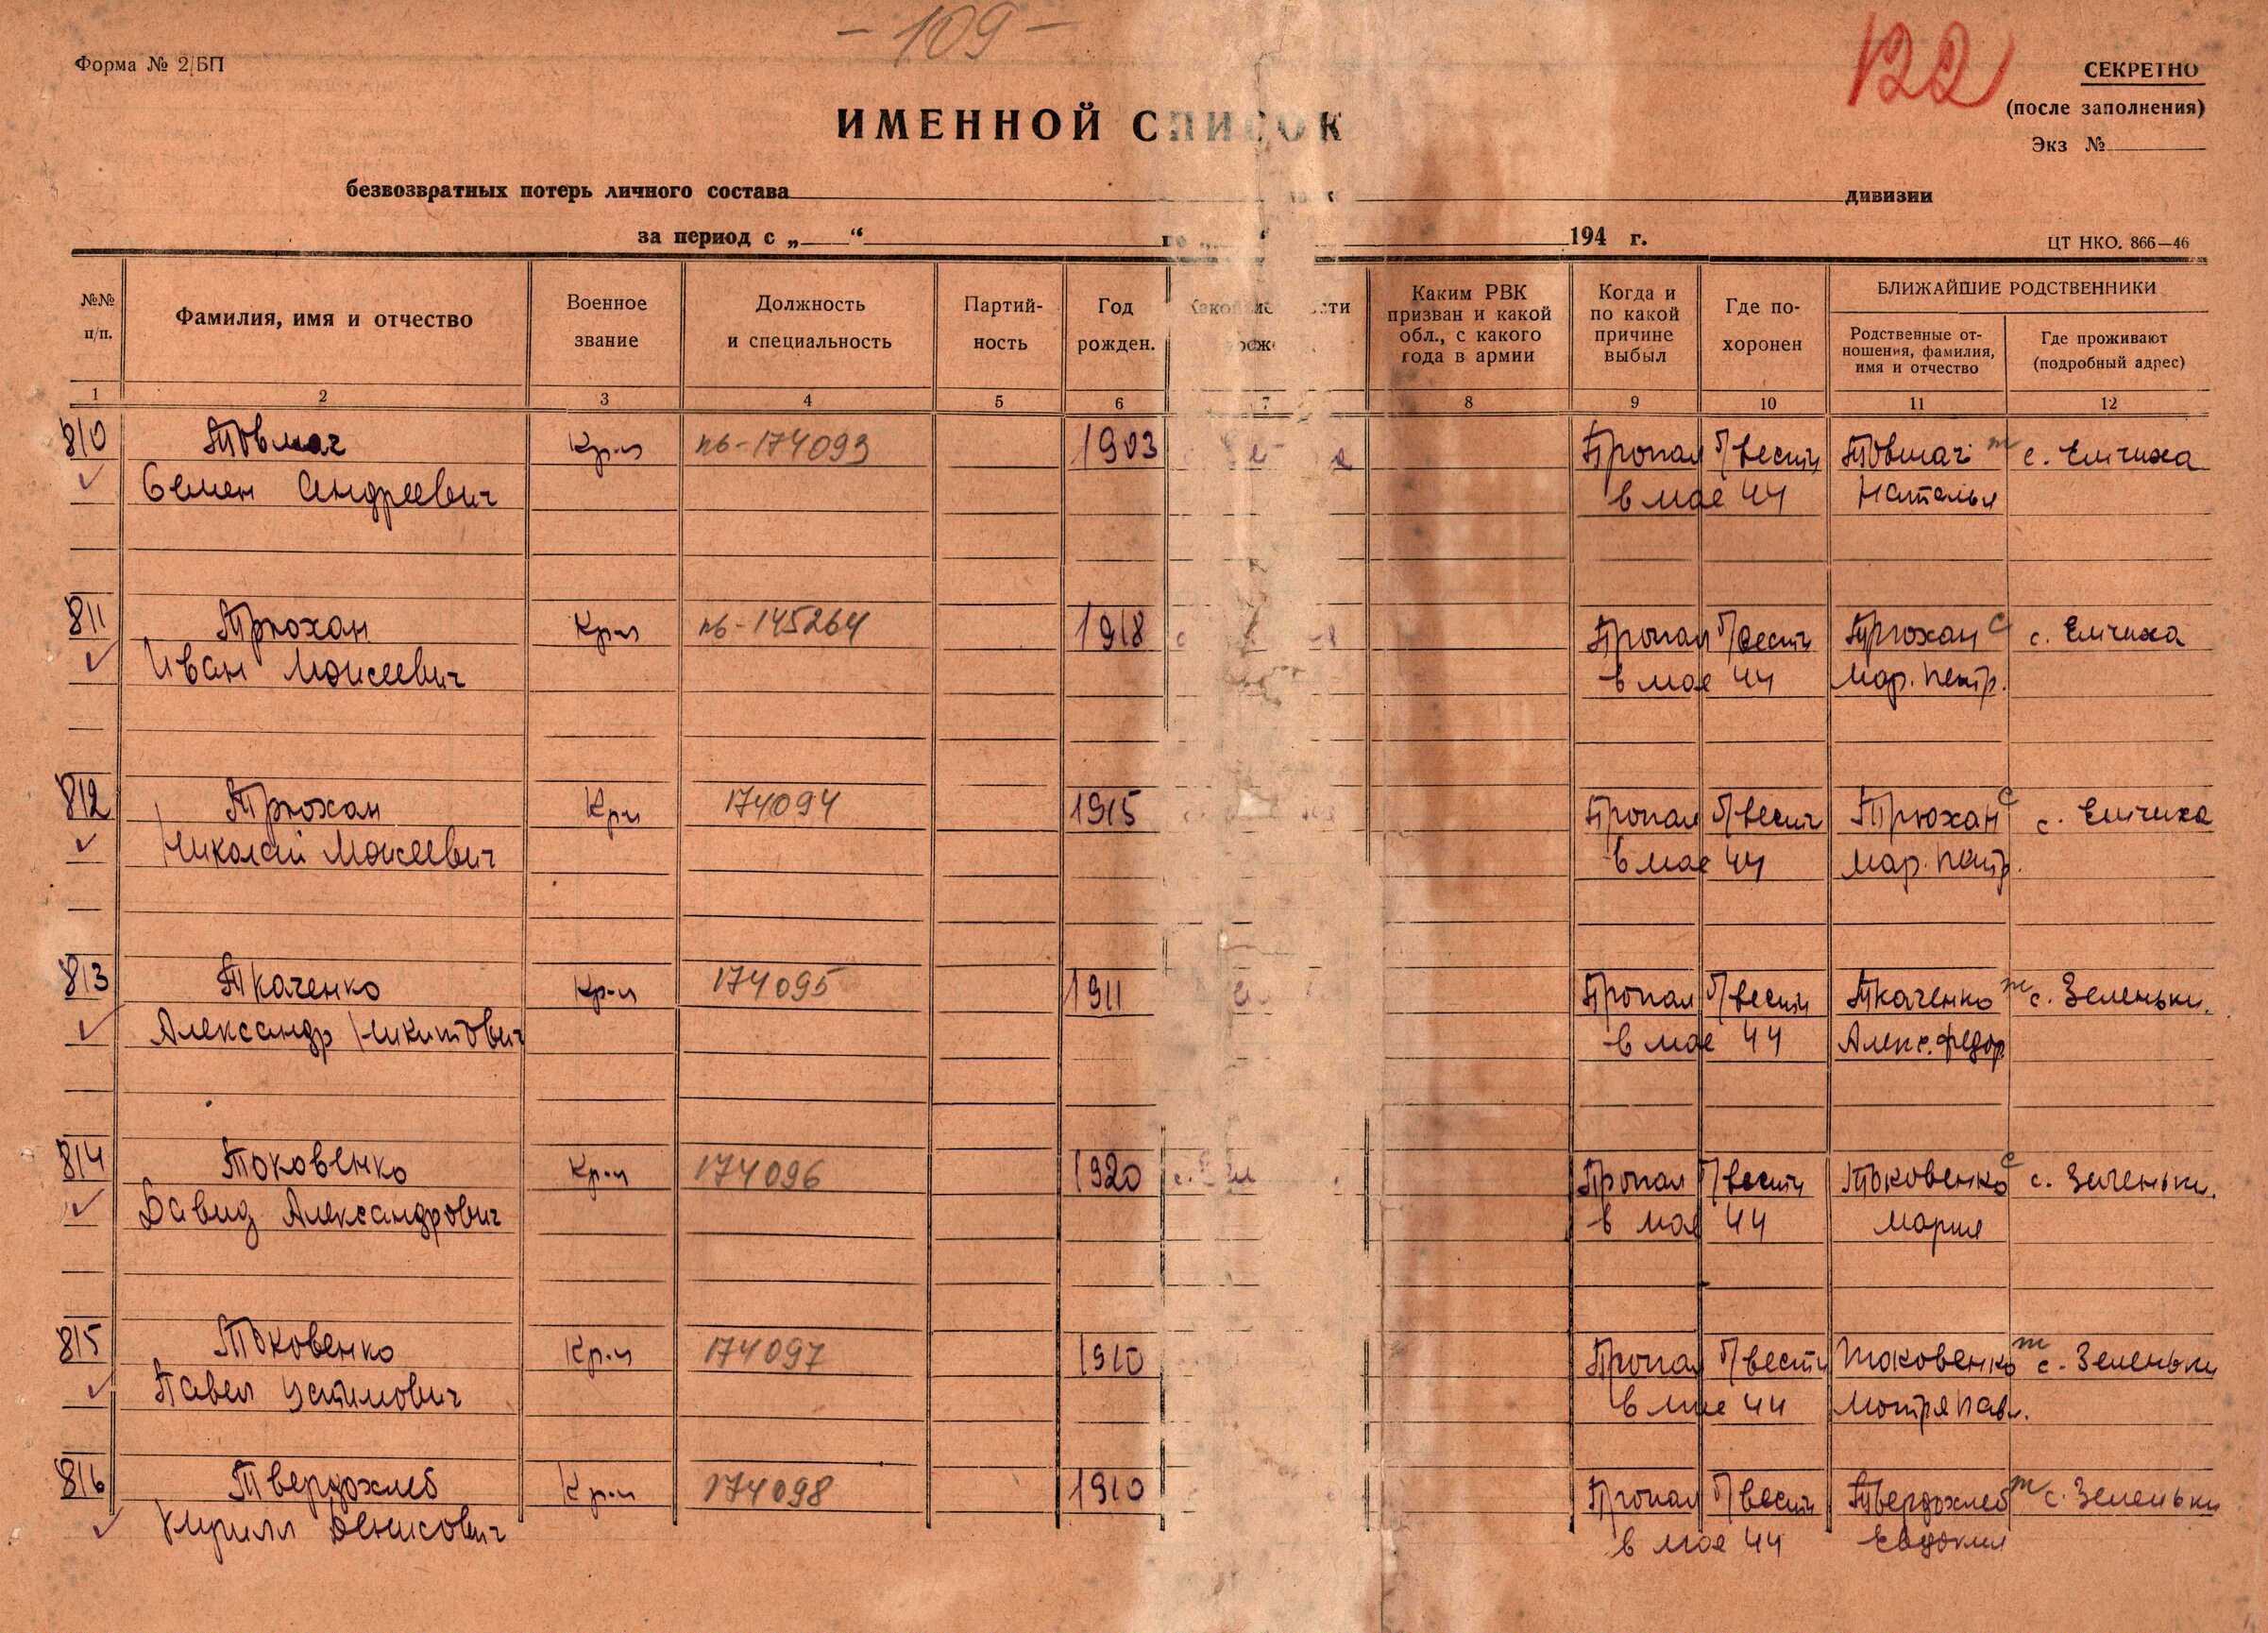 - 109 -
122
Форма № 2/БП
СЕКРЕТНО
(после заполнения)
Экз №
ИМЕННОЙ СПИСОК
безвозвратных потерь личного состава дивизии
за период с „ “ по „ “ 194 г.
ЦТ НКО. 866—46
№№ п/п.
Фамилия, имя и отчество
Военное звание
Должность и специальность
Партий-ность
Год рожден.
Каким РВК призван и какой обл., с какого года в армии
Когда и по какой причине выбыл
Где по-хоронен
БЛИЖАЙШИЕ РОДСТВЕННИКИ
Родственные от-ношения, фамилия, имя и отчество
Где проживают (подробный адрес)
1 2 3 4 5 6 7 8 9 10 11 12
810 Товмач Кр-ц пб-174093 1903 Пропал б/вести Товмач т с. Емчиха
Семен Андреевич в мае 44 Наталья
811 Трюхан Кр-ц пб-145264 1918 Пропал б/вести Трюхан с с. Емчиха
Иван Моисеевич в мае 44 Мар. Петр.
812 Трюхан Крц 174094 1915 Пропал б/вести Трюхан с с. Емчиха
Николай Моисеевич в мае 44 Мар. Петр.
813 Ткаченко Кр-ц 174095 1911 Пропал б/вести Ткаченко т с. Зеленьки.
Александр Никитович в мае 44 Алекс. Федор
814 Токовенко Кр-ц 174096 1920 Пропал б/вести Токовенко с с. Зеленьки.
Давид Александрович в мае 44 Мария
815 Токовенко Кр-ц 174097 1910 Пропал б/вести Токовенко т с. Зеленьки
Павел Устимович в мае 44 Мотря Пав.
816 Твердохлеб Кр-ц 174098 1910 Пропал б/вести Твердохлеб т с. Зеленьки
Кирилл Денисович в мае 44 Евдокия